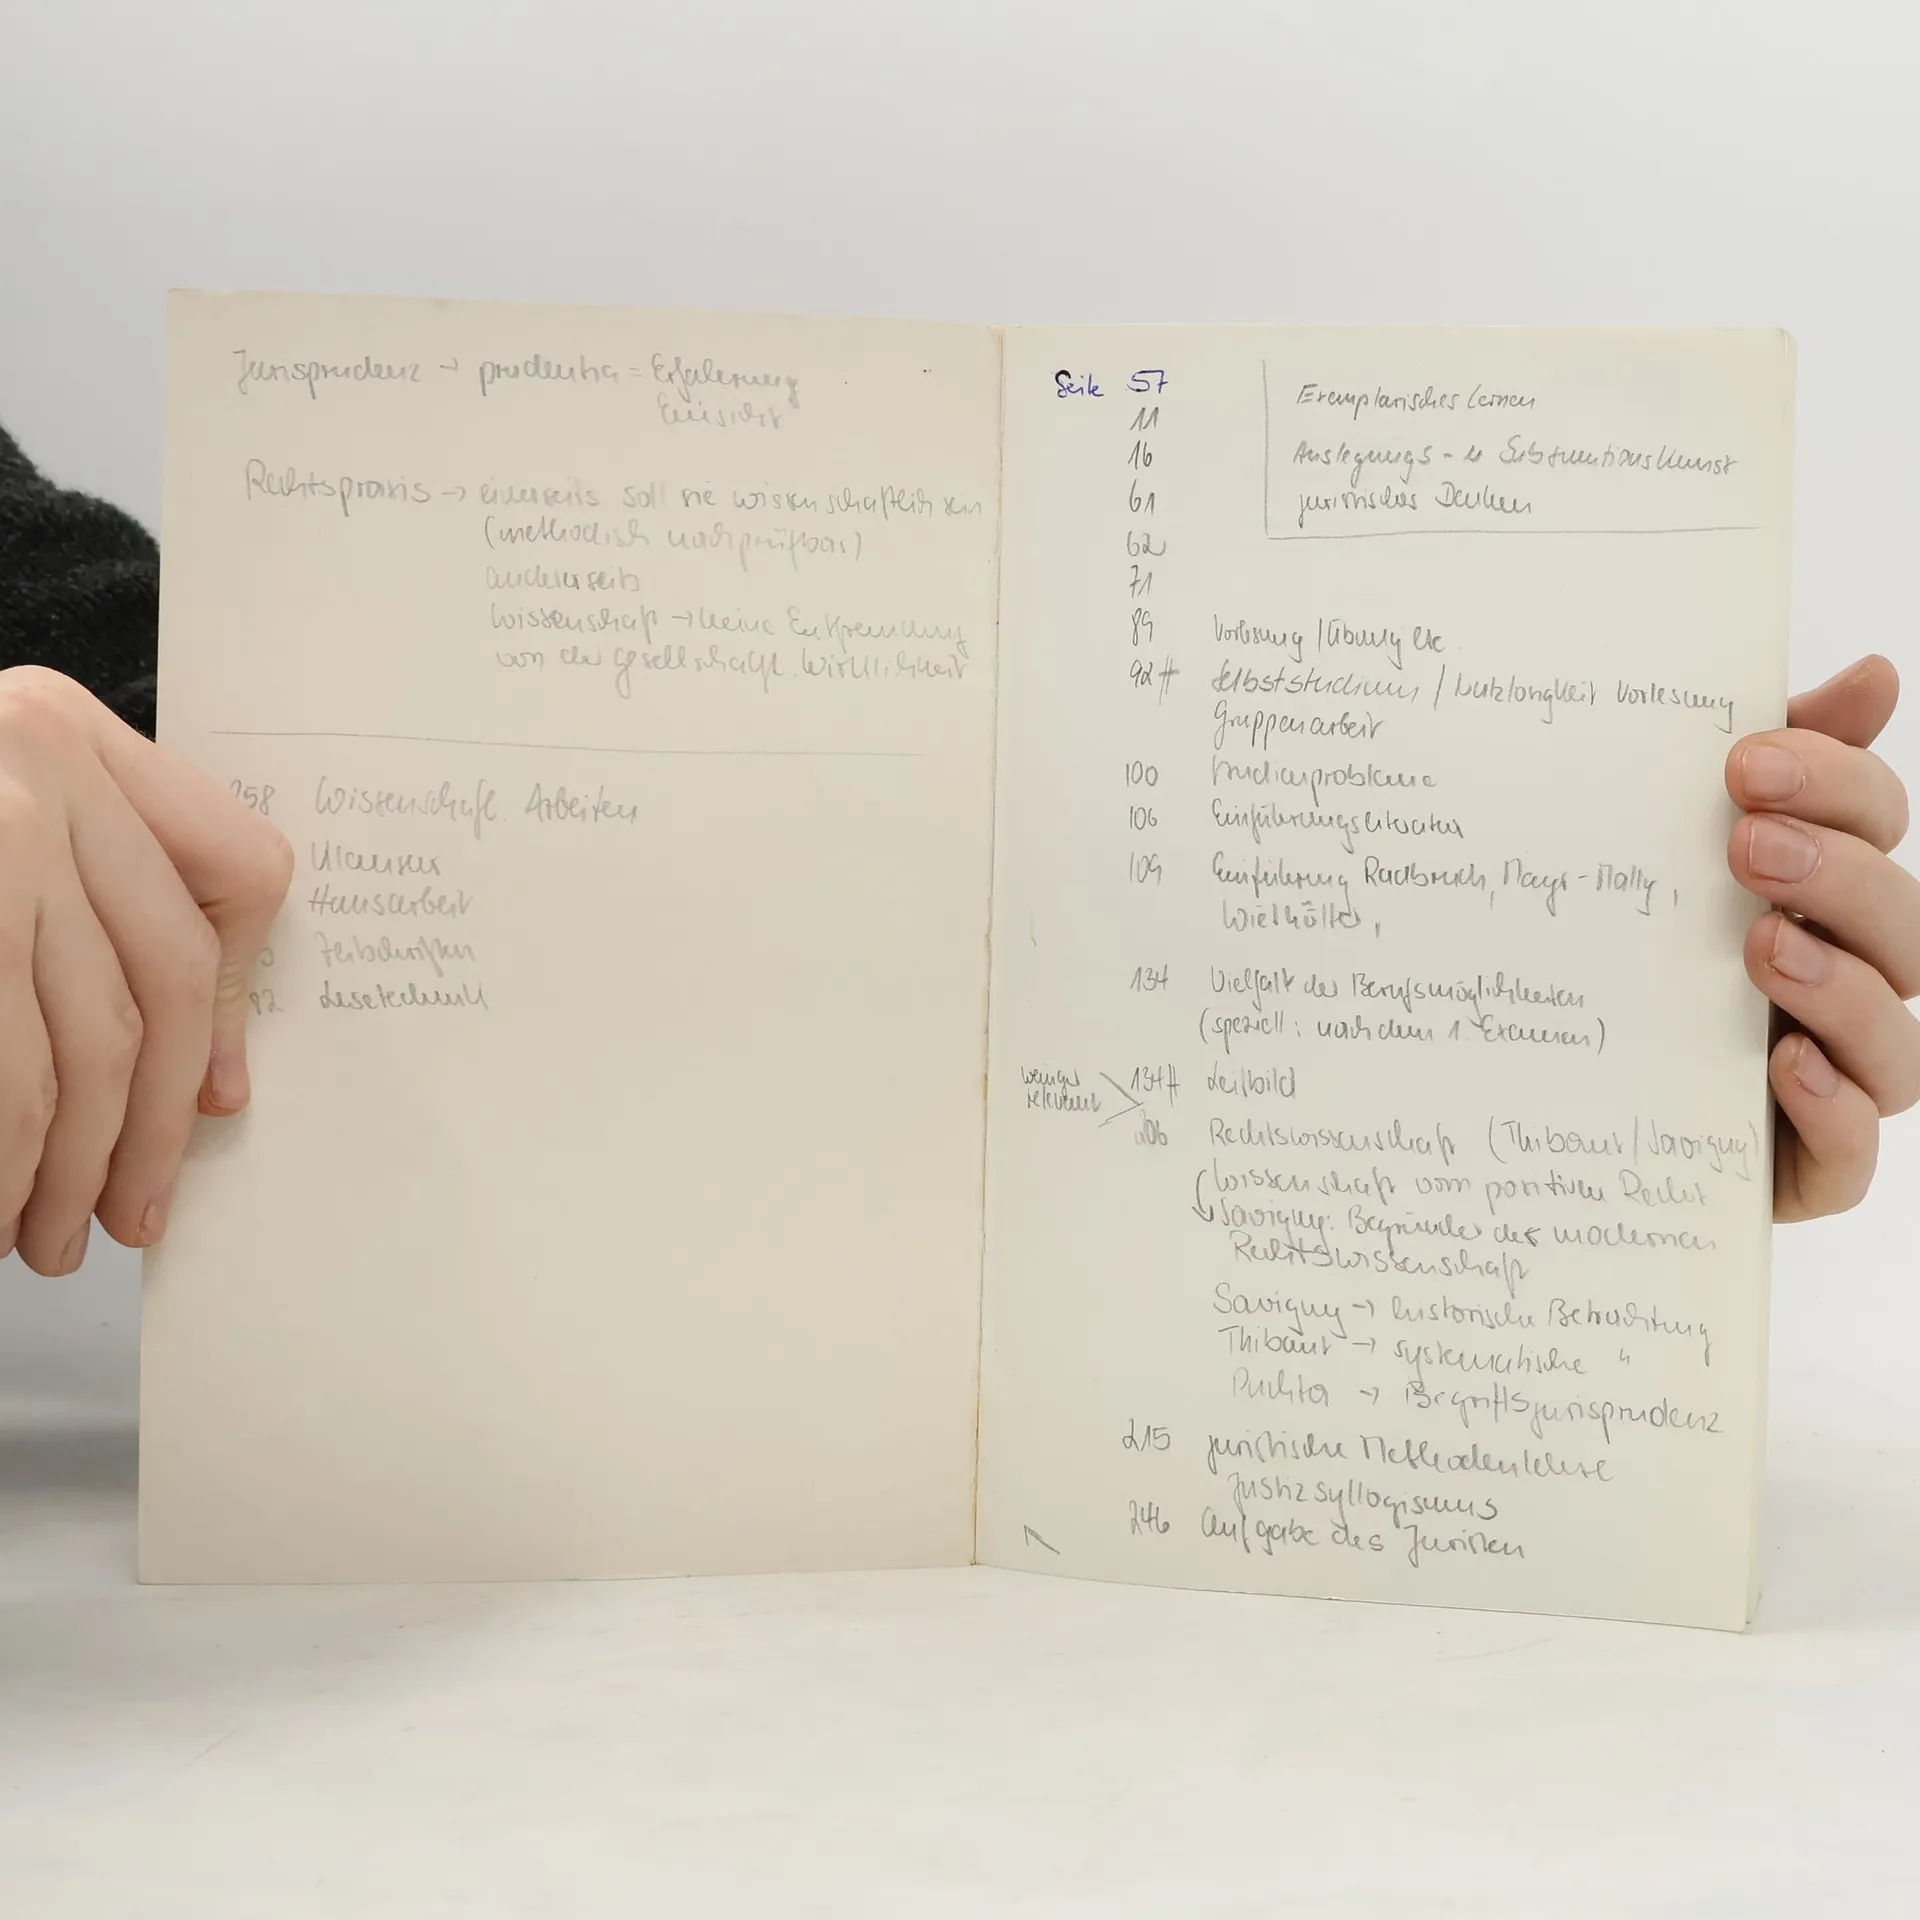 Jurisprudenz → prudentia = Erfahrung
Einsicht
Rechtspraxis → einerseits soll sie wissenschaftlich sein
(methodisch nachprüfbar)
andererseits
Wissenschaft → keine Entfremdung
von der gesellschaftl. Wirklichkeit
258 Wissenschaftl. Arbeiten
Klausur
Hausarbeit
Zeitschriften
82 Lesetechnik
Seite 57
11
16
61
62
71
Exemplarisches Lernen
Auslegungs- u Subsumtionskunst
juristisches Denken
89 Vorlesung / Übung etc.
92 ff Selbststudium / Nutzlosigkeit Vorlesung
Gruppenarbeit
100 Studienprobleme
106 Einführungsliteratur
109 Einführung Radbruch, Mayer-Maly,
Wiethölter,
134 Vielfalt der Berufsmöglichkeiten
(speziell: nach dem 1. Examen)
weniger
relevant
134 ff Leitbild
206 Rechtswissenschaft (Thibaut / Savigny)
Wissenschaft vom positiven Recht
Savigny: Begründer der modernen
Rechtswissenschaft
Savigny → historische Betrachtung
Thibaut → systematische "
Puchta → Begriffsjurisprudenz
215 juristische Methodenlehre
Justizsyllogismus
246 Aufgabe des Juristen